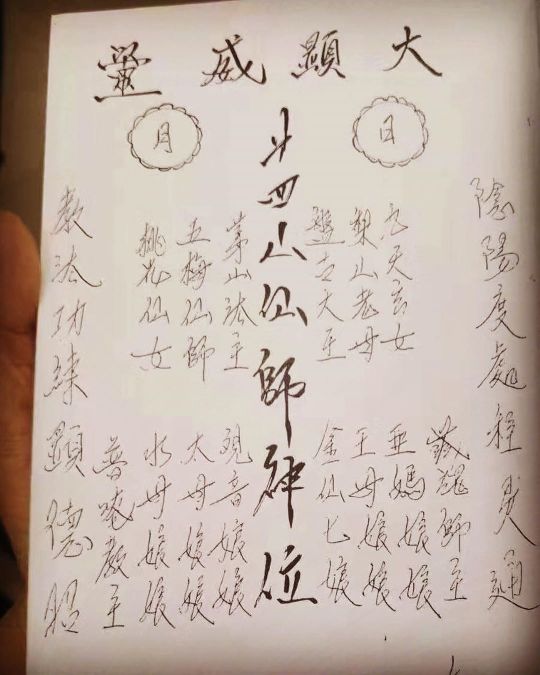 大顯威靈
日
月
陰陽度處種英通
九天玄女
梨山老母
盤古大王
斗四山仙師神位
茅山法主
五梅仙師
桃花仙女
藏魂師主
亜媽娘娘
王母娘娘
金仙七娘
观音娘娘
太母娘娘
水母娘娘
普唵教主
教法功練顕德昭